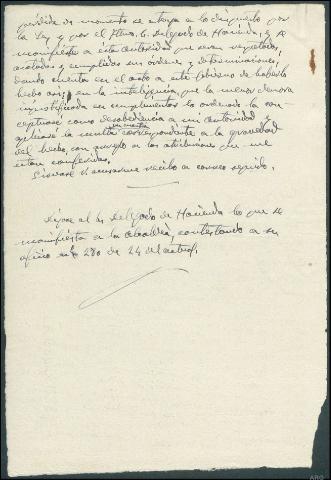 pérdida de momento se atenga a lo dispuesto por
la Ley y por el Iltmo. Sr. Delegado de Hacienda, y se
manifieste a esta autoridad que seran respetadas,
acatadas y cumplidas sus órdenes y determinaciones,
dando cuenta en el acto a este Gobierno de haberlo
hecho así; en la inteligencia que la menor demora
injustificada en cumplimentar lo ordenado la con-
ceptuaré como desobediencia a mi autoridad y
aplicaré la multa correspondiente a la gravedad
del hecho, con arreglo a las atribuciones que me
estan conferidas.
Sírvase acusarme recibo a correo seguido.
Dígase al Sr. Delegado de Hacienda lo que se
manifiesta a la Alcaldía, contestando a su
oficio nº 280 de 24 del actual.